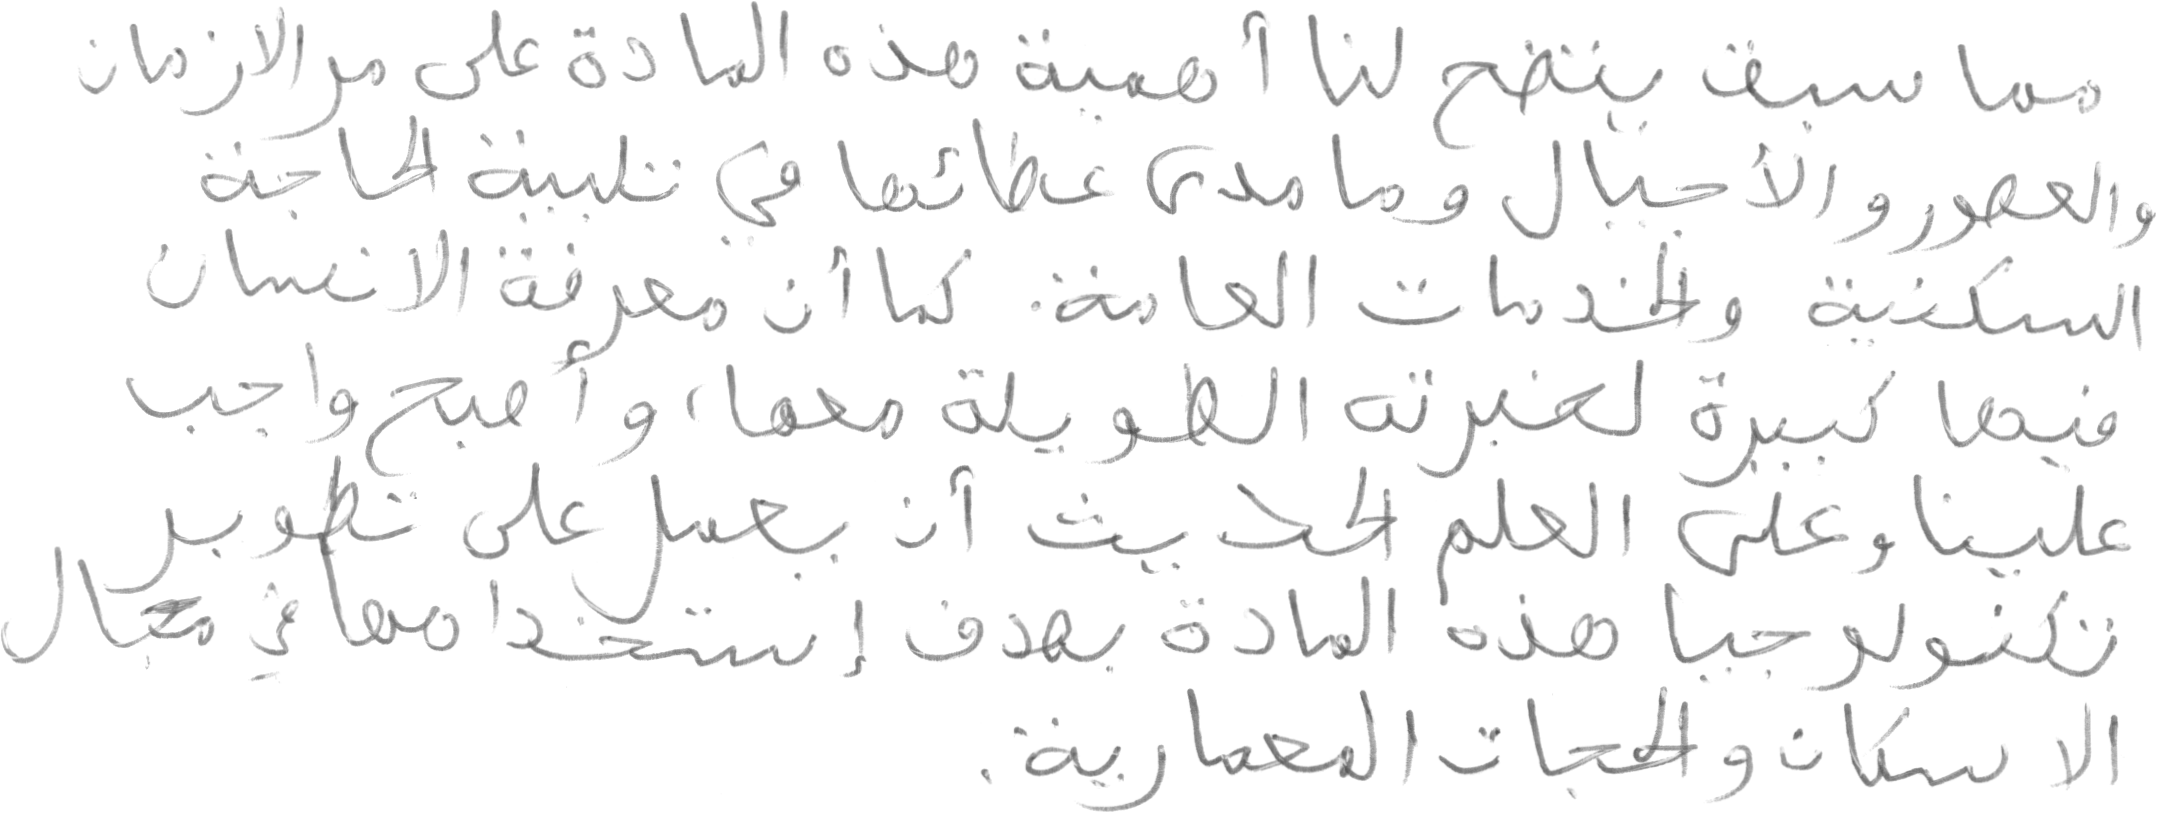 مما سبق يتضح لنا أهمية هذه المادة على مر الازمان
والعصور والأجيال وما مدى عطائها في تلبية الحاجة
السكنية والخدمات العامة. كما أن معرفة الانسان
فيها كبيرة لخبرته الطويلة معها، وأصبح واجب
علينا وعلى العلم الحديث أن يعمل على تطوير
تكنولوجيا هذه المادة بهدف إستخدامها في مجال
الاسكان والحجات المعمارية.